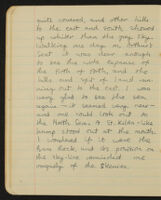 quite covered, and other hills
to the east and south, showed
up whiter than the grey sky.
Walking one day on Arthur's
Seat it was clear enough
to see the wide expanse of
the Firth of Forth, and the
hills and spit of land run-
ning out to the east. I was
very glad to see the sea
again - it seemed very near -
and one could look out to
the North Sea. A St. Kilda-like
hump stood out at the mouth.
I wondered if it were the
Bass Rock, and its position on
the sky-line reminded me
vaguely of the Skerries.